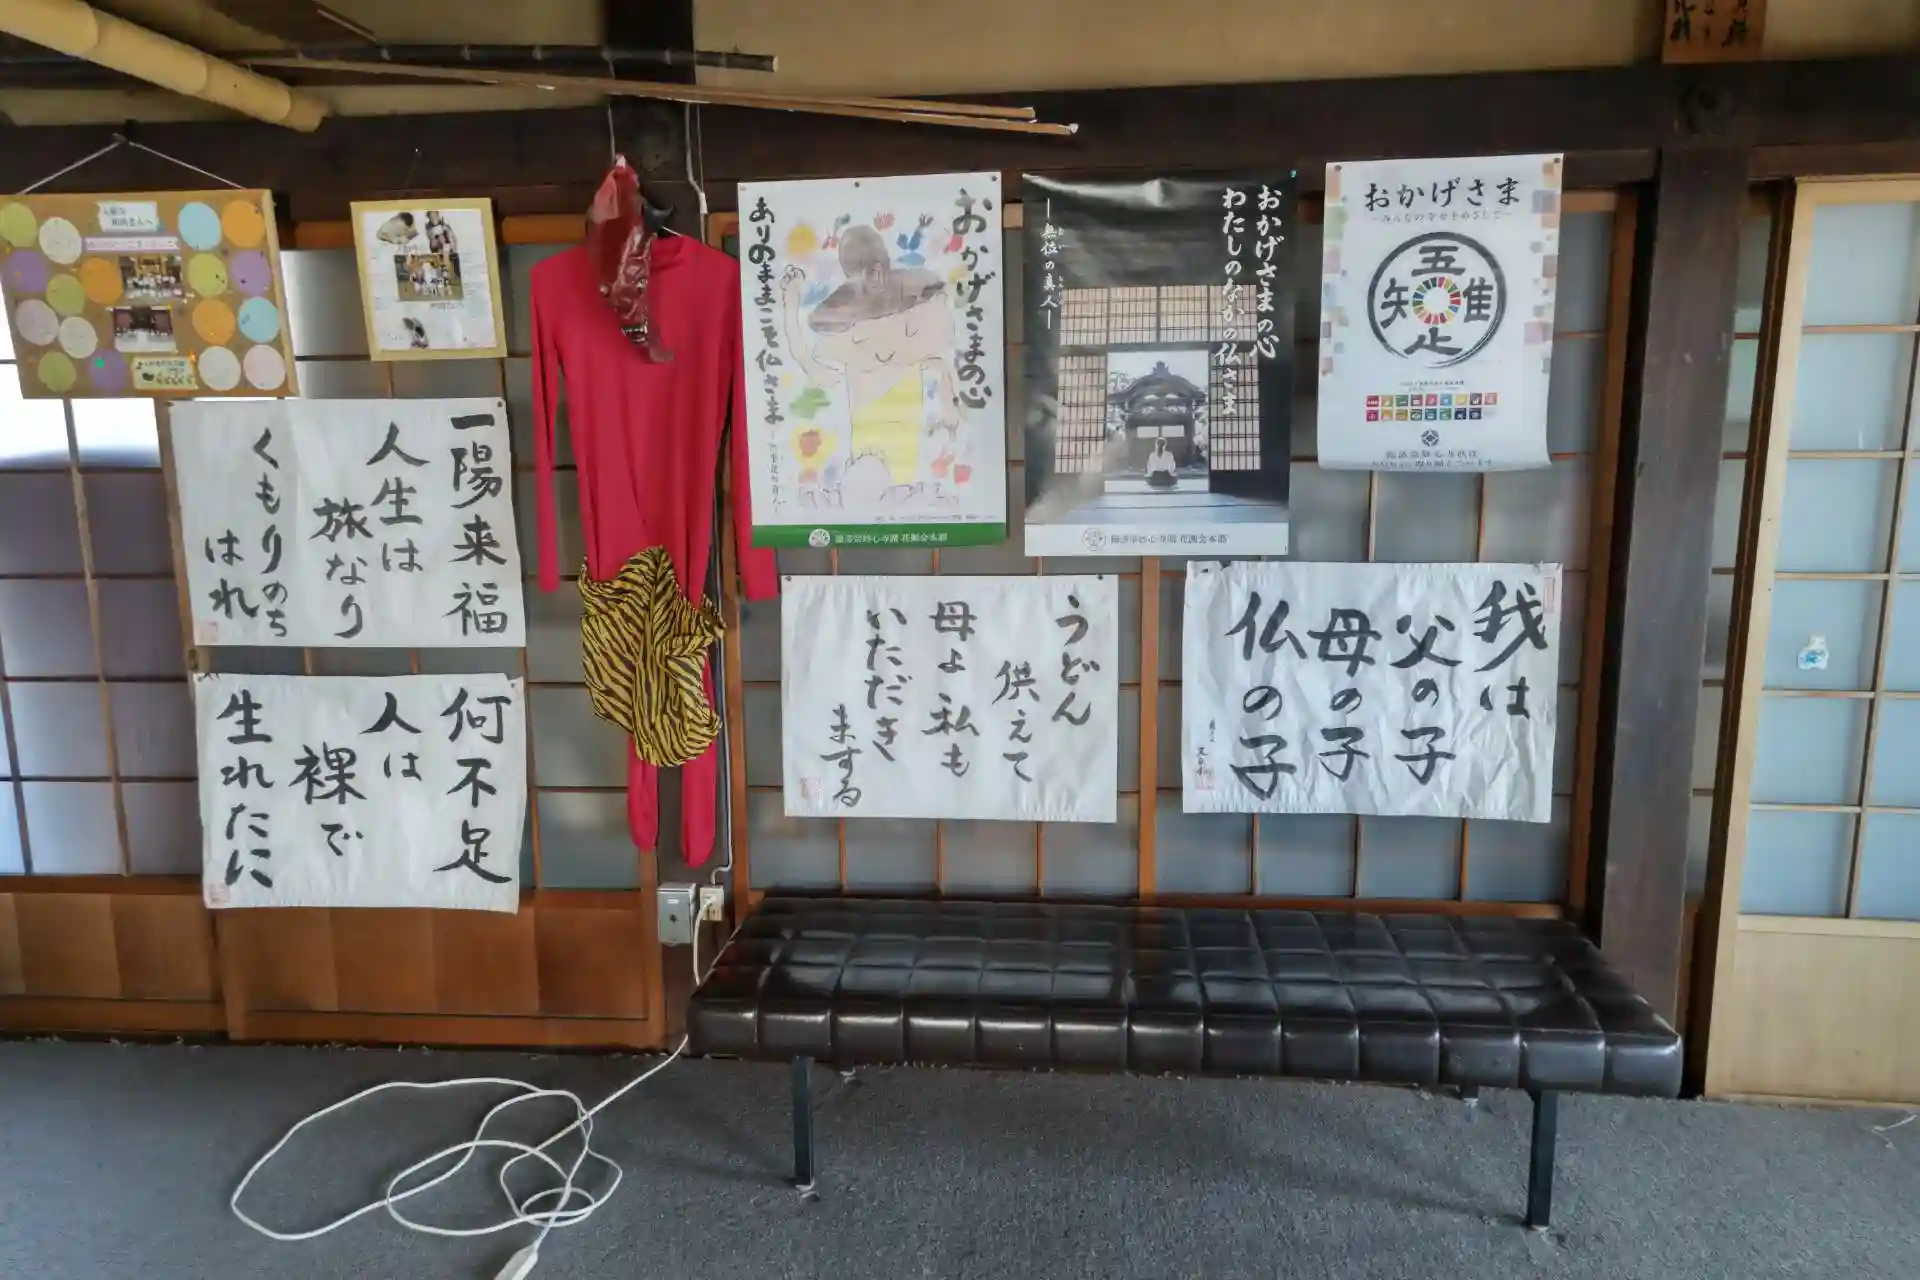 おかげさまの心
ありのままこそ仏さま
臨済宗妙心寺派 花園会本部
おかげさまの心
わたしのなかの仏さま
―無位の真人―
臨済宗妙心寺派 花園会本部
おかげさま
―みんなの幸せをめざして―
五
唯
止
矢
一陽来福
人生は
旅なり
くもりのち
はれ
何不足
人は
裸で
生れたに
うどん
供えて
母よ私も
いただき
まする
我は
父の子
母の子
仏の子